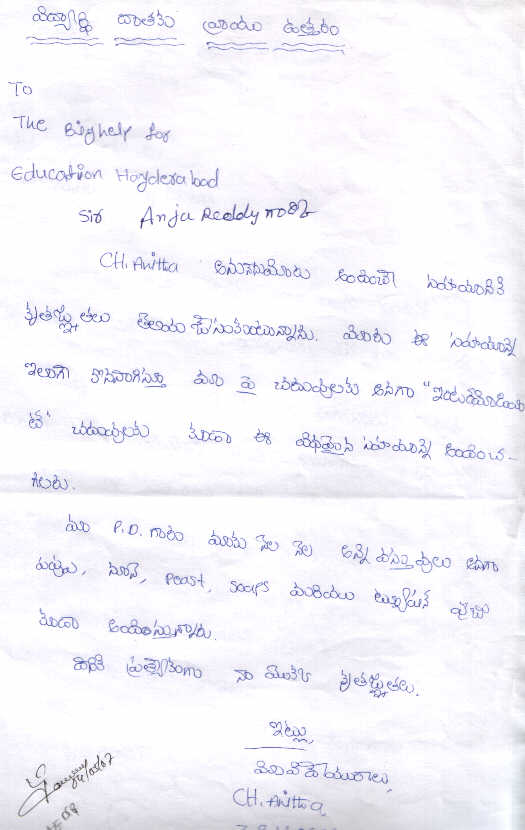 విద్యార్థి దాతకు వ్రాయు ఉత్తరం
To
The Bighelp for
Education Hayderabad
Sir Anja Reddy గారికి
CH. Anitha అను నేను మీరు అందించే సహాయానికి
కృతజ్ఞతలు తెలియ చేసుకుంటున్నాను. మీరు ఈ సహాయాన్ని
ఇలాగే కొనసాగిస్తూ మా పై చదువులకు అనగా "ఇంటర్మీడియ
ట్" చదువులకు కూడా ఈ విధమైన సహాయాన్ని అందించ-
గలరు.
మా P.D. గారు మాకు నెల నెల అన్ని వస్తువులు అనగా
పప్పు, నూనె, Peast, Soaps మరియు ట్యూషన్ ఫీజు
కూడా అందిస్తున్నారు.
దీనికి ప్రత్యేకంగా నా యొక్క కృతజ్ఞతలు.
ఇట్లు
మీ విధేయురాలు,
CH. Anitha,